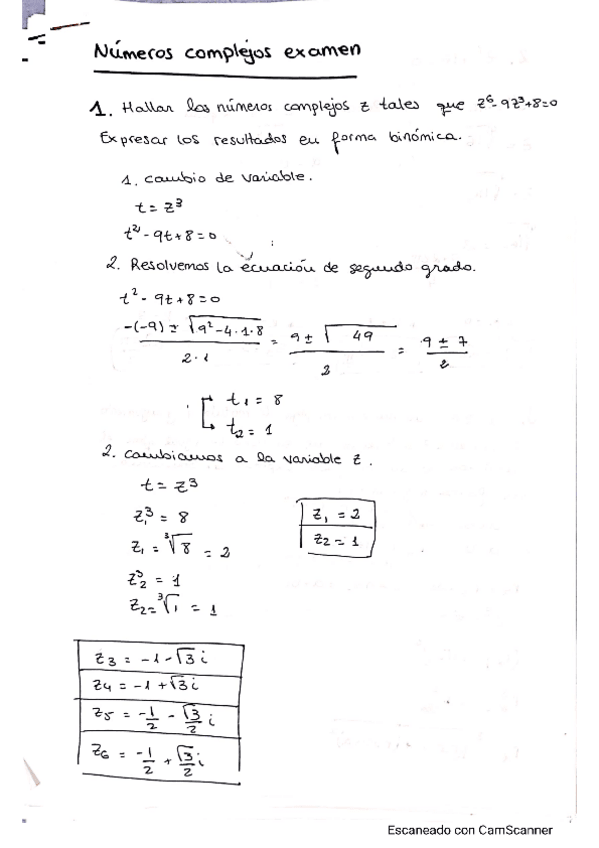 Números complejos examen
1. Hallar los números complejos z tales que z⁶-9z³+8=0
Expresar los resultados en forma binómica.
1. cambio de variable.
t = z³
t² - 9t + 8 = 0
2. Resolvemos la ecuación de segundo grado.
t² - 9t + 8 = 0
-(-9) ± √(9²-4·1·8) / 2·1 = 9 ± √49 / 2 = 9 ± 7 / 2
t₁ = 8
t₂ = 1
2. cambiamos a la variable z.
t = z³
z₁³ = 8
z₁ = ³√8 = 2
z₂³ = 1
z₂ = ³√1 = 1
z₁ = 2
z₂ = 1
z₃ = -1 - √3 i
z₄ = -1 + √3 i
z₅ = -1/2 - √3/2 i
z₆ = -1/2 + √3/2 i
Escaneado con CamScanner